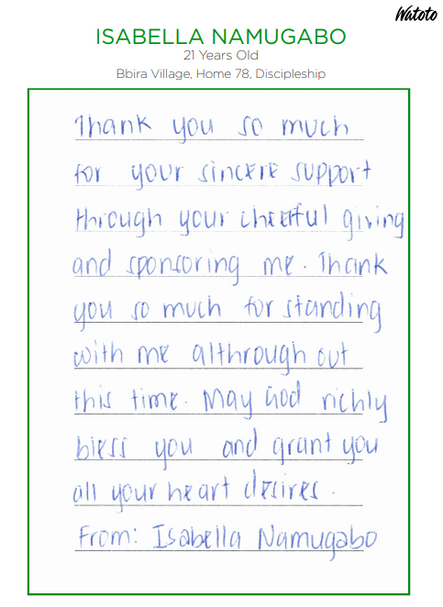 Watoto
ISABELLA NAMUGABO
21 Years Old
Bbira Village, Home 78, Discipleship
Thank you so much
for your sincere support
through your cheerful giving
and sponsoring me. Thank
you so much for standing
with me althrough out
this time. May God richly
bless you and grant you
all your heart desires.
From: Isabella Namugabo